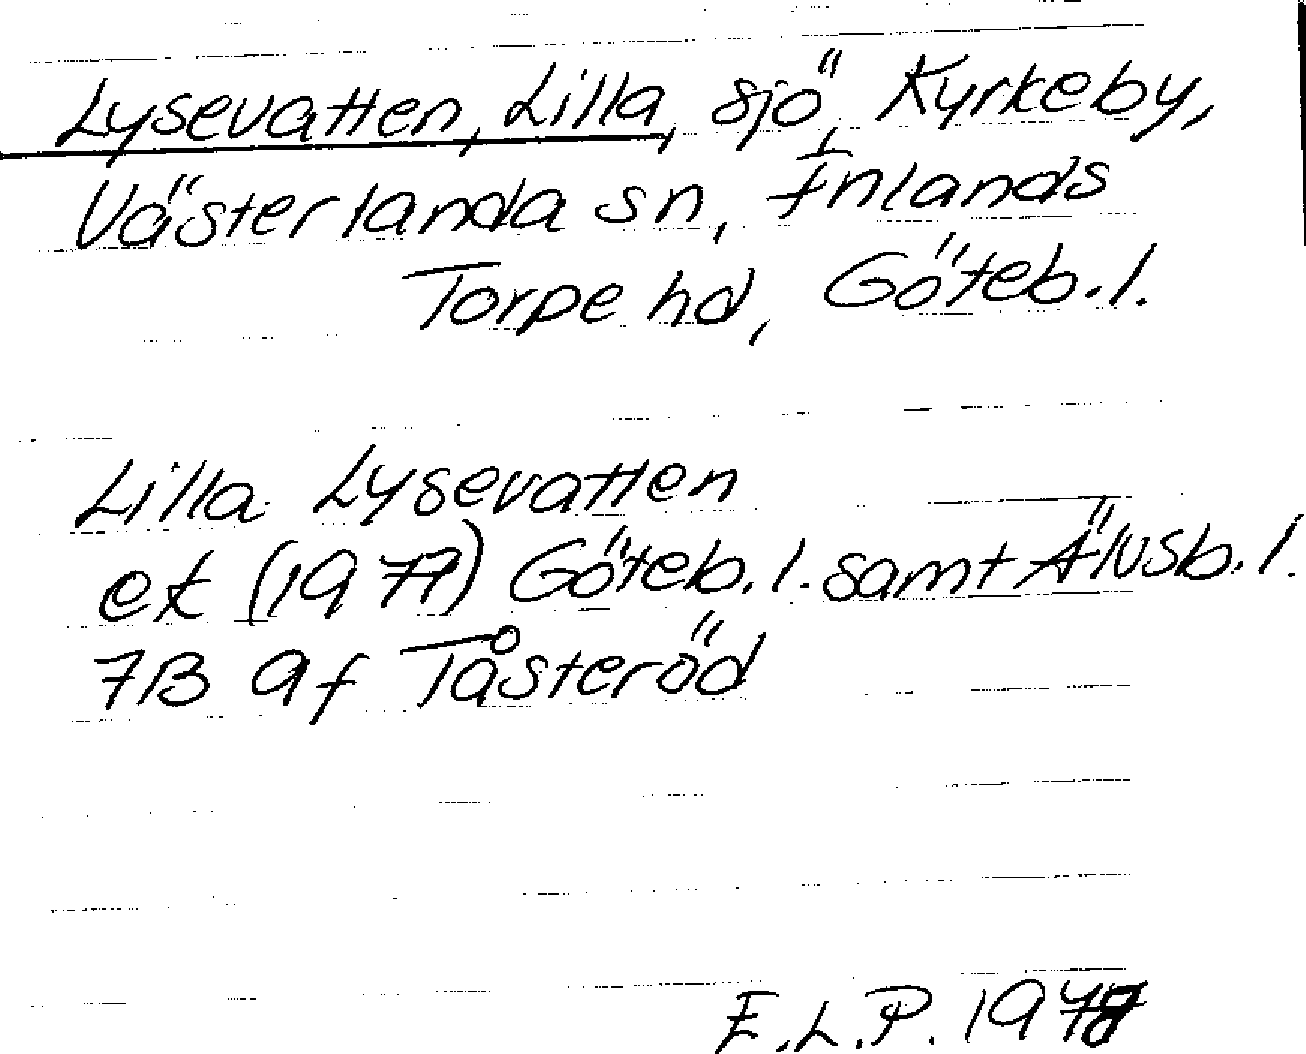 Lysevatten, Lilla, sjö, Kyrkeby,
Västerlanda sn, Inlands
Torpe hd, Göteb.l.
Lilla Lysevatten
ek (1977) Göteb.l. samt Älvsb.l.
7B 9f Tåsteröd
E.L.P. 1978